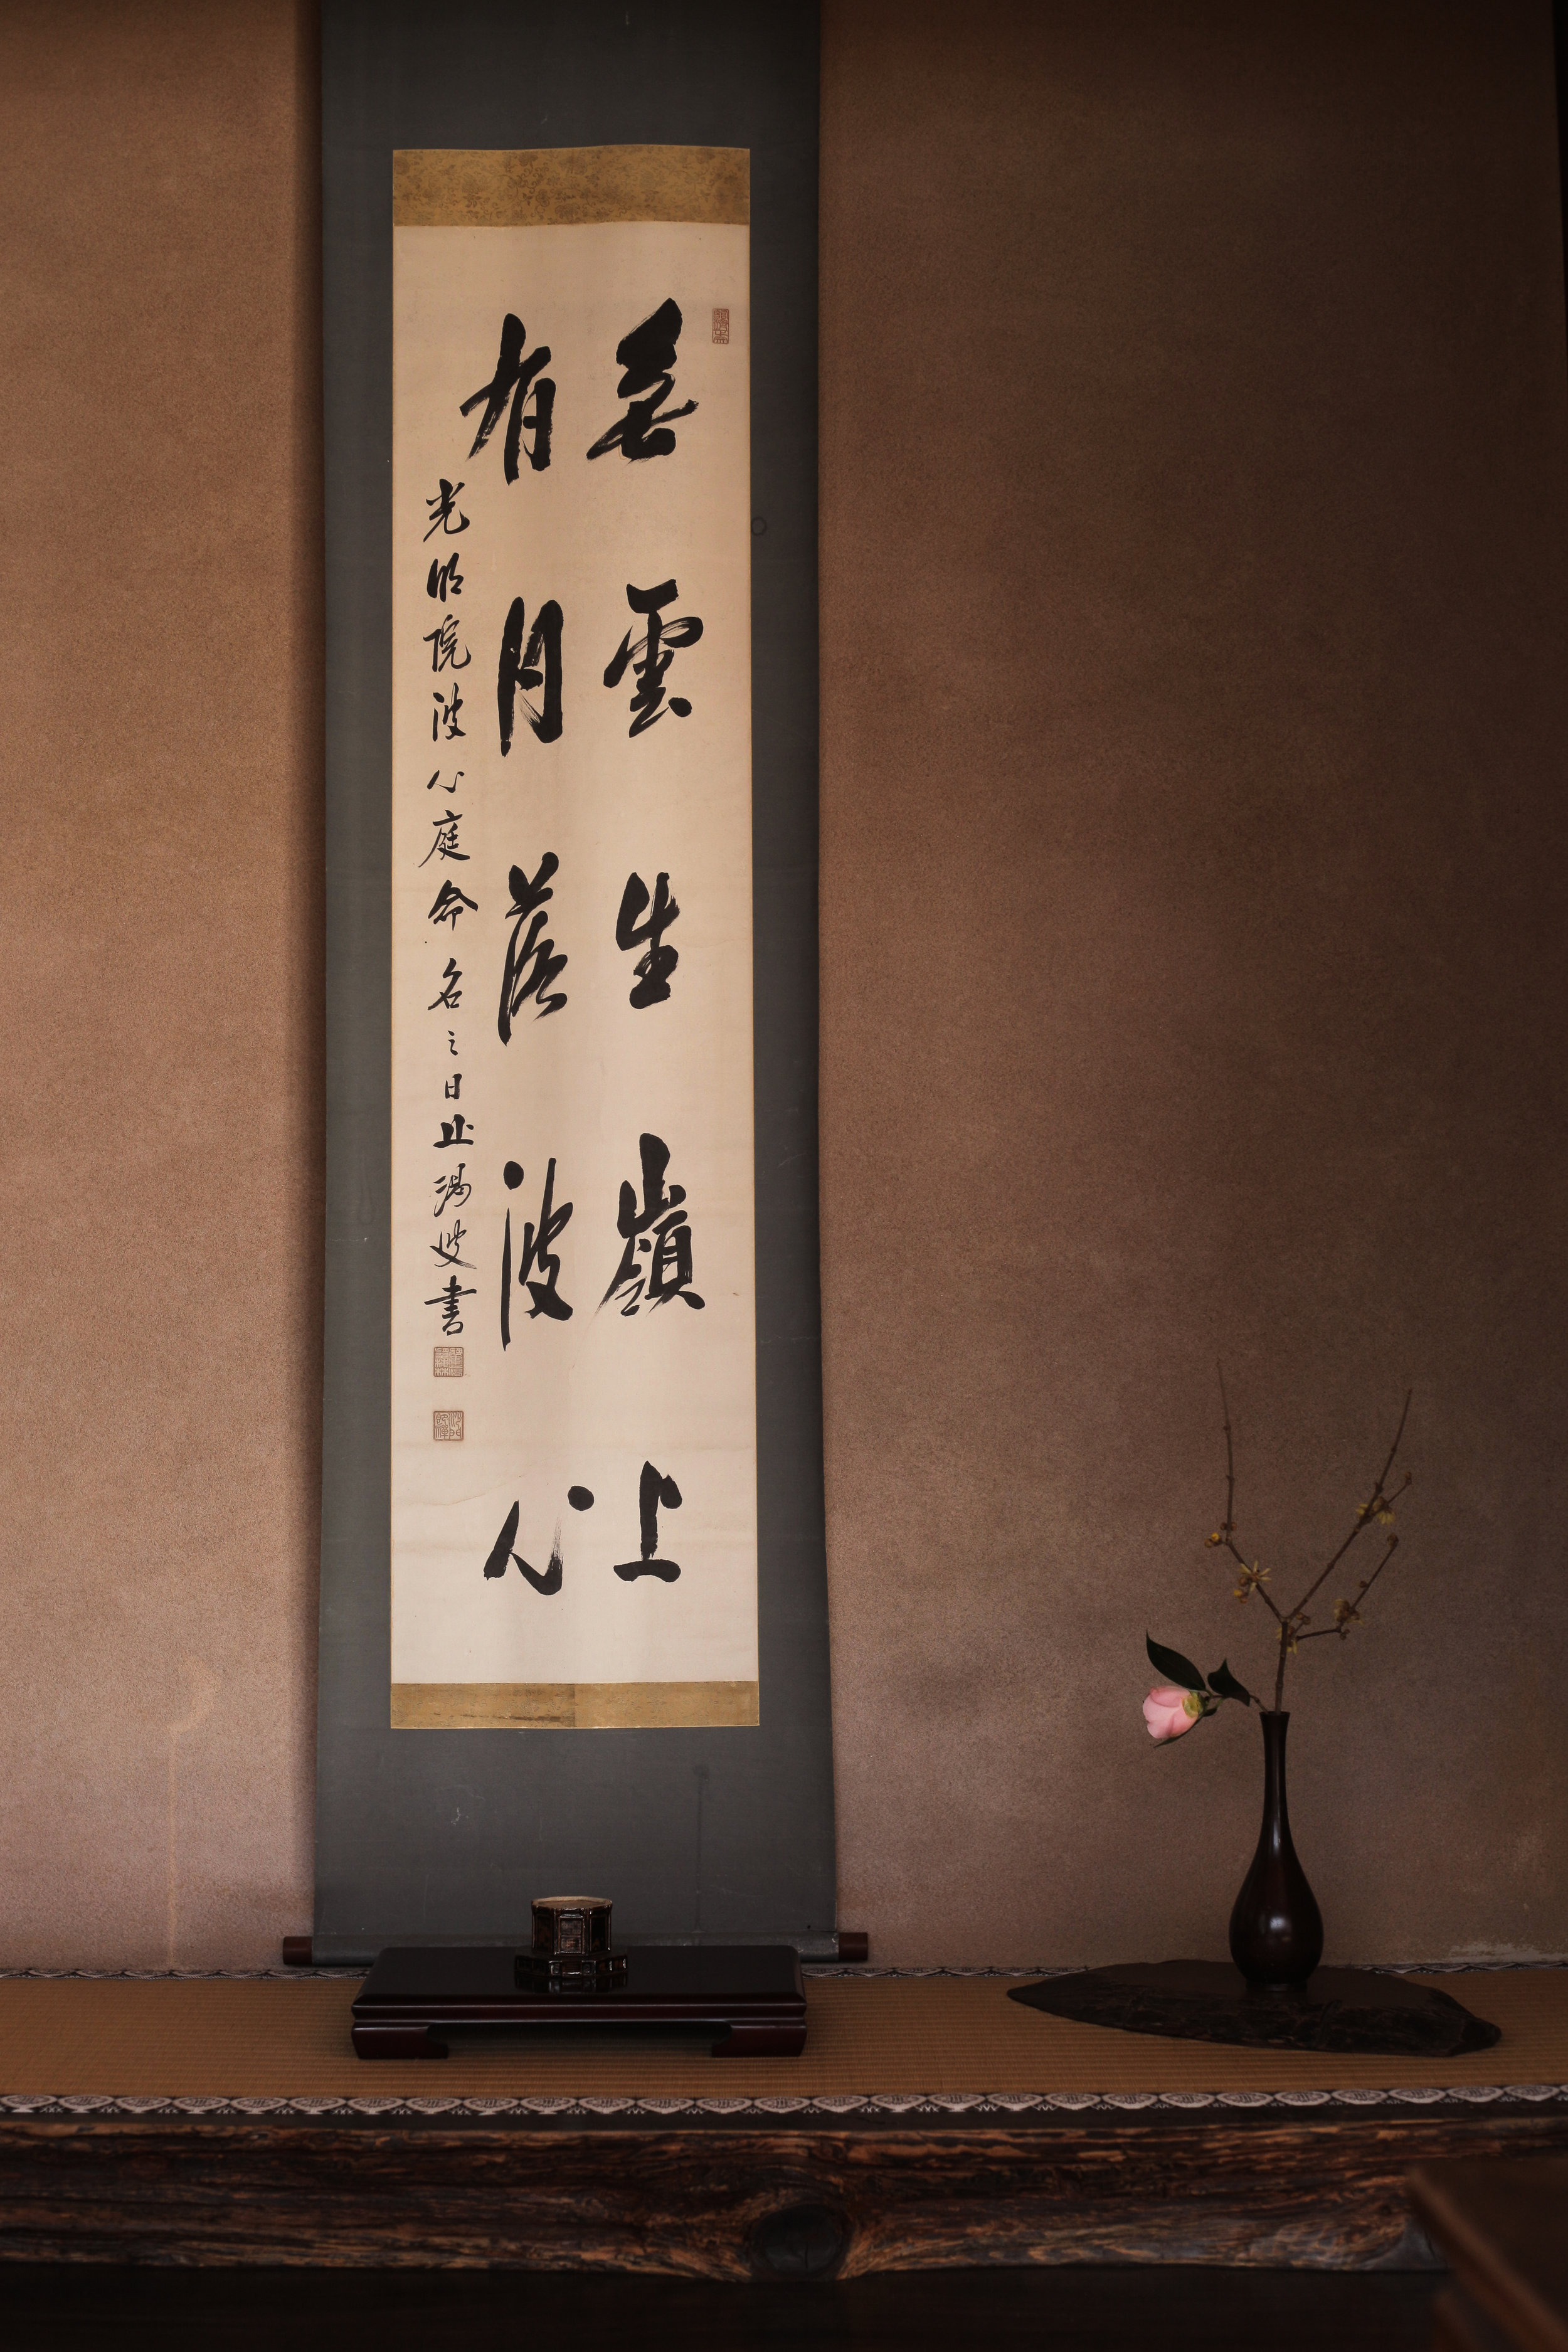 無雲生嶺上
有月落波心
光明院波心庭命名之日止渇叟書